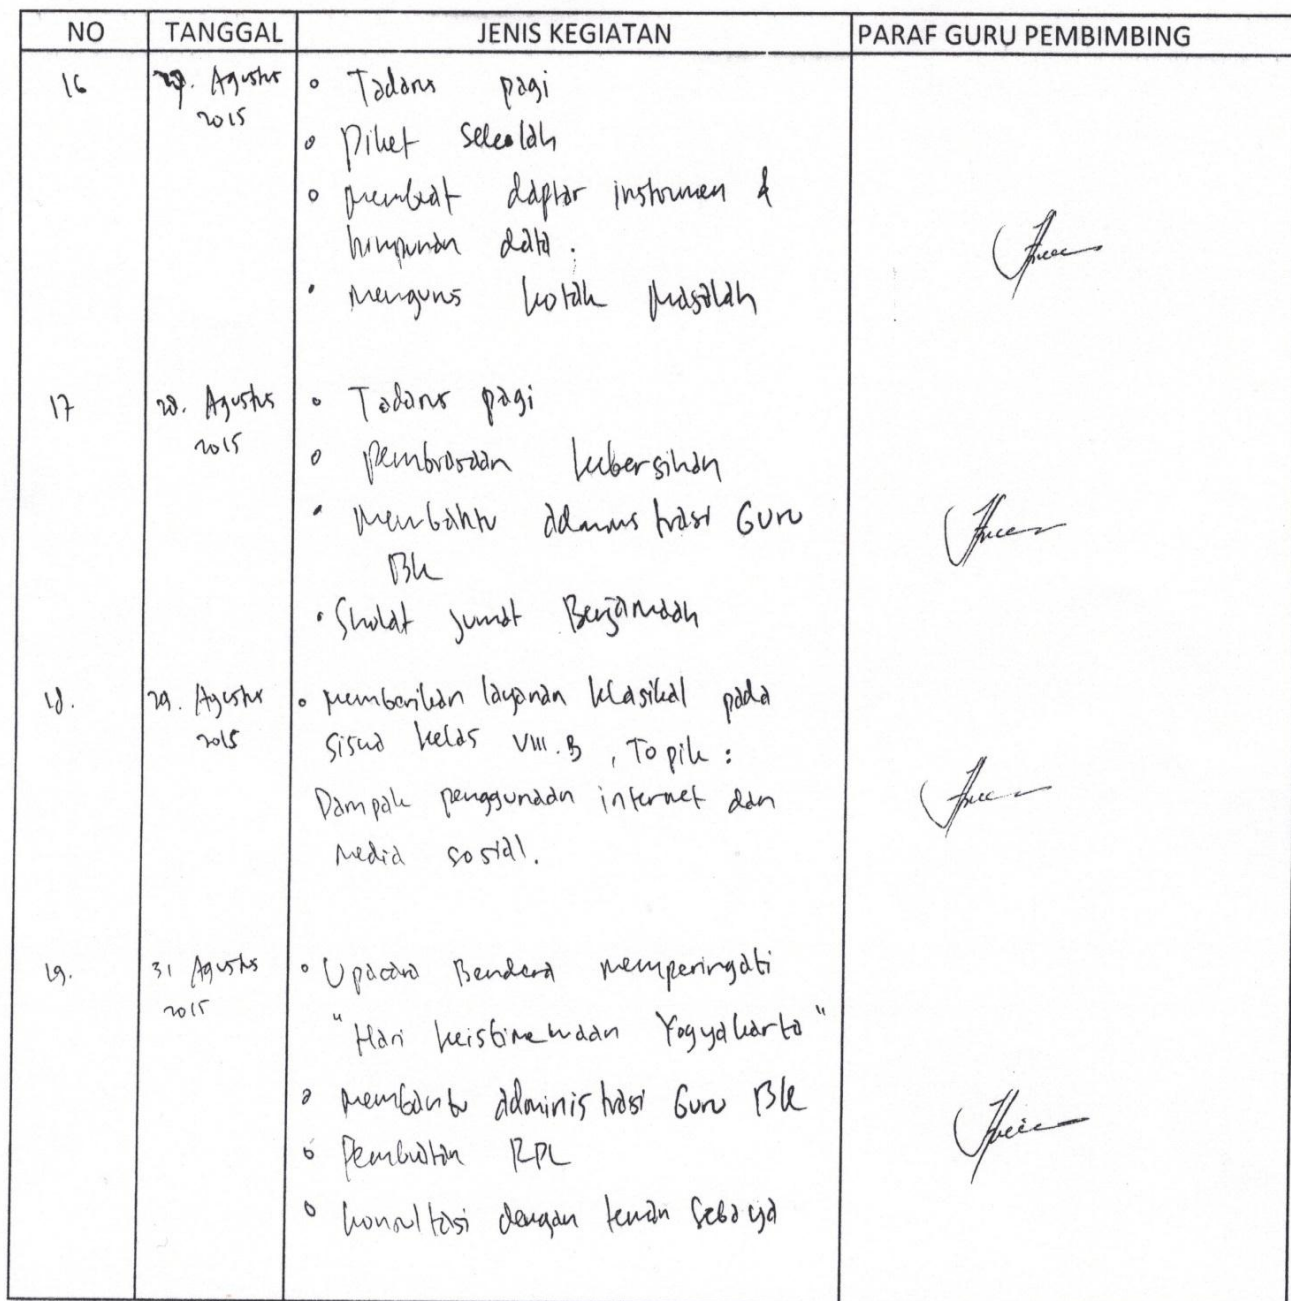 NO TANGGAL JENIS KEGIATAN PARAF GURU PEMBIMBING
16 27. Agustus 2015
• Tadarus pagi
• Piket sekolah
• membuat daptar instrumen &
himpunan data.
• Mengurus kotak Masalah
17 28. Agustus 2015
• Tadarus pagi
• pembiasaan kebersihan
• Membantu administrasi Guru
BK
• Sholat jumat Berjamaah
18. 29. Agustus 2015
• memberikan layanan klasikal pada
siswa kelas VIII.B, Topik:
Dampak penggunaan internet dan
media sosial.
19. 31 Agustus 2015
• Upacara Bendera memperingati
"Hari keistimewaan Yogyakarta"
• membantu administrasi Guru BK
• Pembuatan RPL
• konsultasi dengan teman sebaya